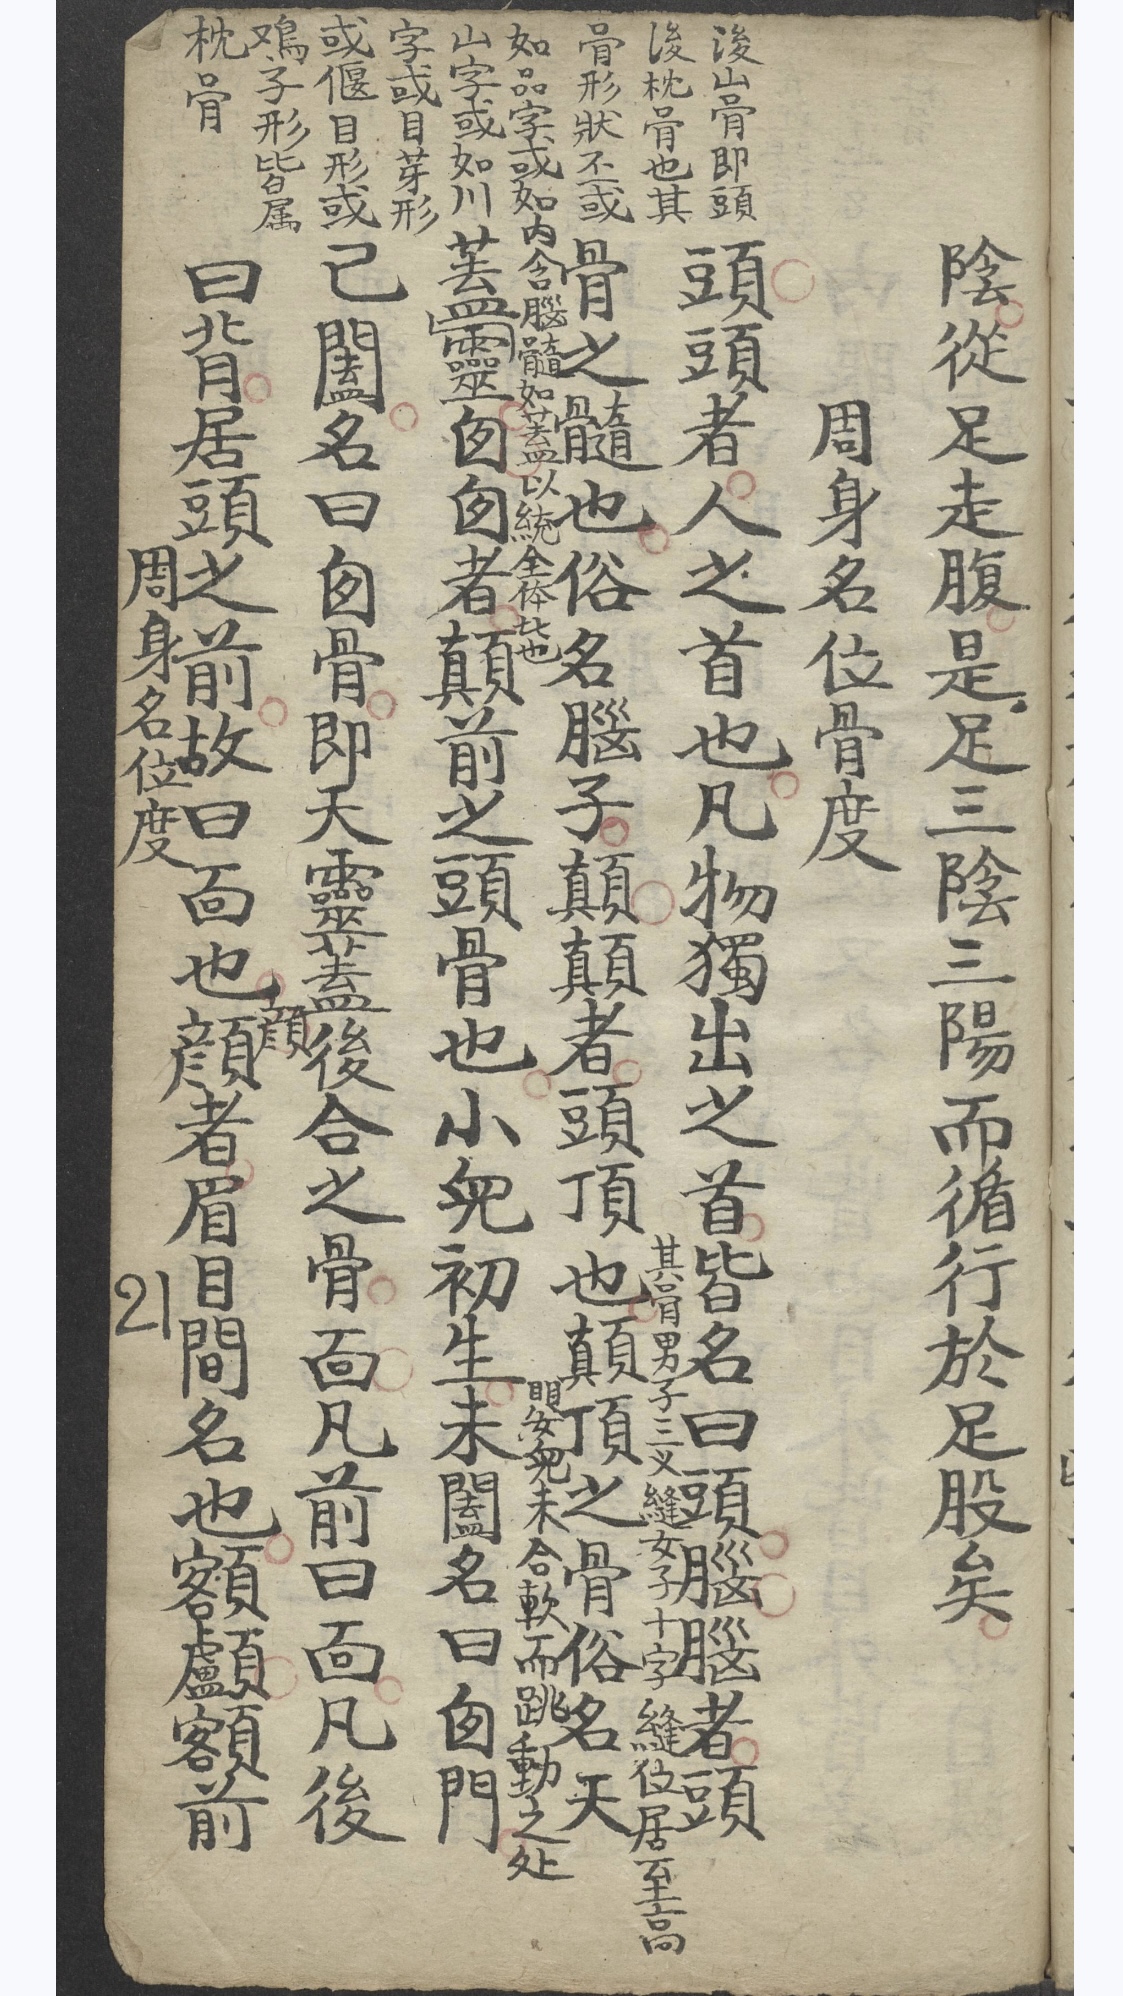 陰從足走腹是足三陰三陽而循行於足股矣
周身名位骨度
頭頭者人之首也凡物獨出之首皆名曰頭腦腦者頭
骨之髓也俗名腦子顛顛者頭頂也顛頂之骨俗名天
其骨男子三义縫女子十字縫位居至高
内含腦髓如蓋以統全体也
蓋靈囟囟者顛前之頭骨也小兒初生未闔名曰囟門
嬰兒未合軟而跳動之处
已闔名曰囟骨即天靈蓋後合之骨面凡前曰面凡後
曰背居頭之前故曰面也顔者眉目間名也額顱額前
顔
後山骨即頭
後枕骨也其
骨形狀不一或
如品字或如
山字或如川
字或目芽形
或偃目形或
鳮子形皆属
枕骨
周身名位度
21